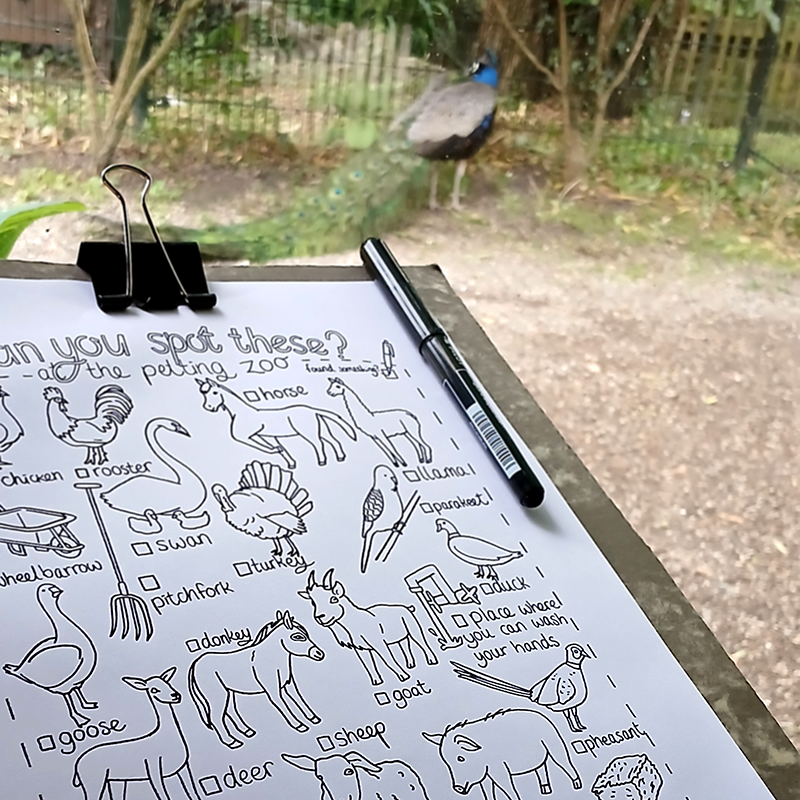 an you spot these?
at the petting zoo
found something?
horse
chicken
rooster
llama
parakeet
swan
wheelbarrow
turkey
duck
pitchfork
place where
you can wash
your hands
donkey
goat
goose
sheep
pheasant
deer